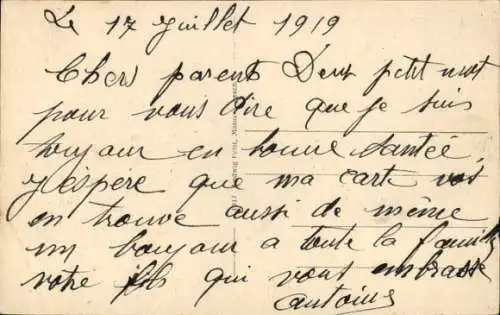 Le 17 Juillet 1919
Chers parents Deux petit mot
pour vous dire que je suis
toujour en bonne santée,
J'espère que ma carte vos
en trouve aussi de même
un bonjour a toute la famille
votre fils qui vous embrasse
Antoine
Ludwig Feist, Mainz